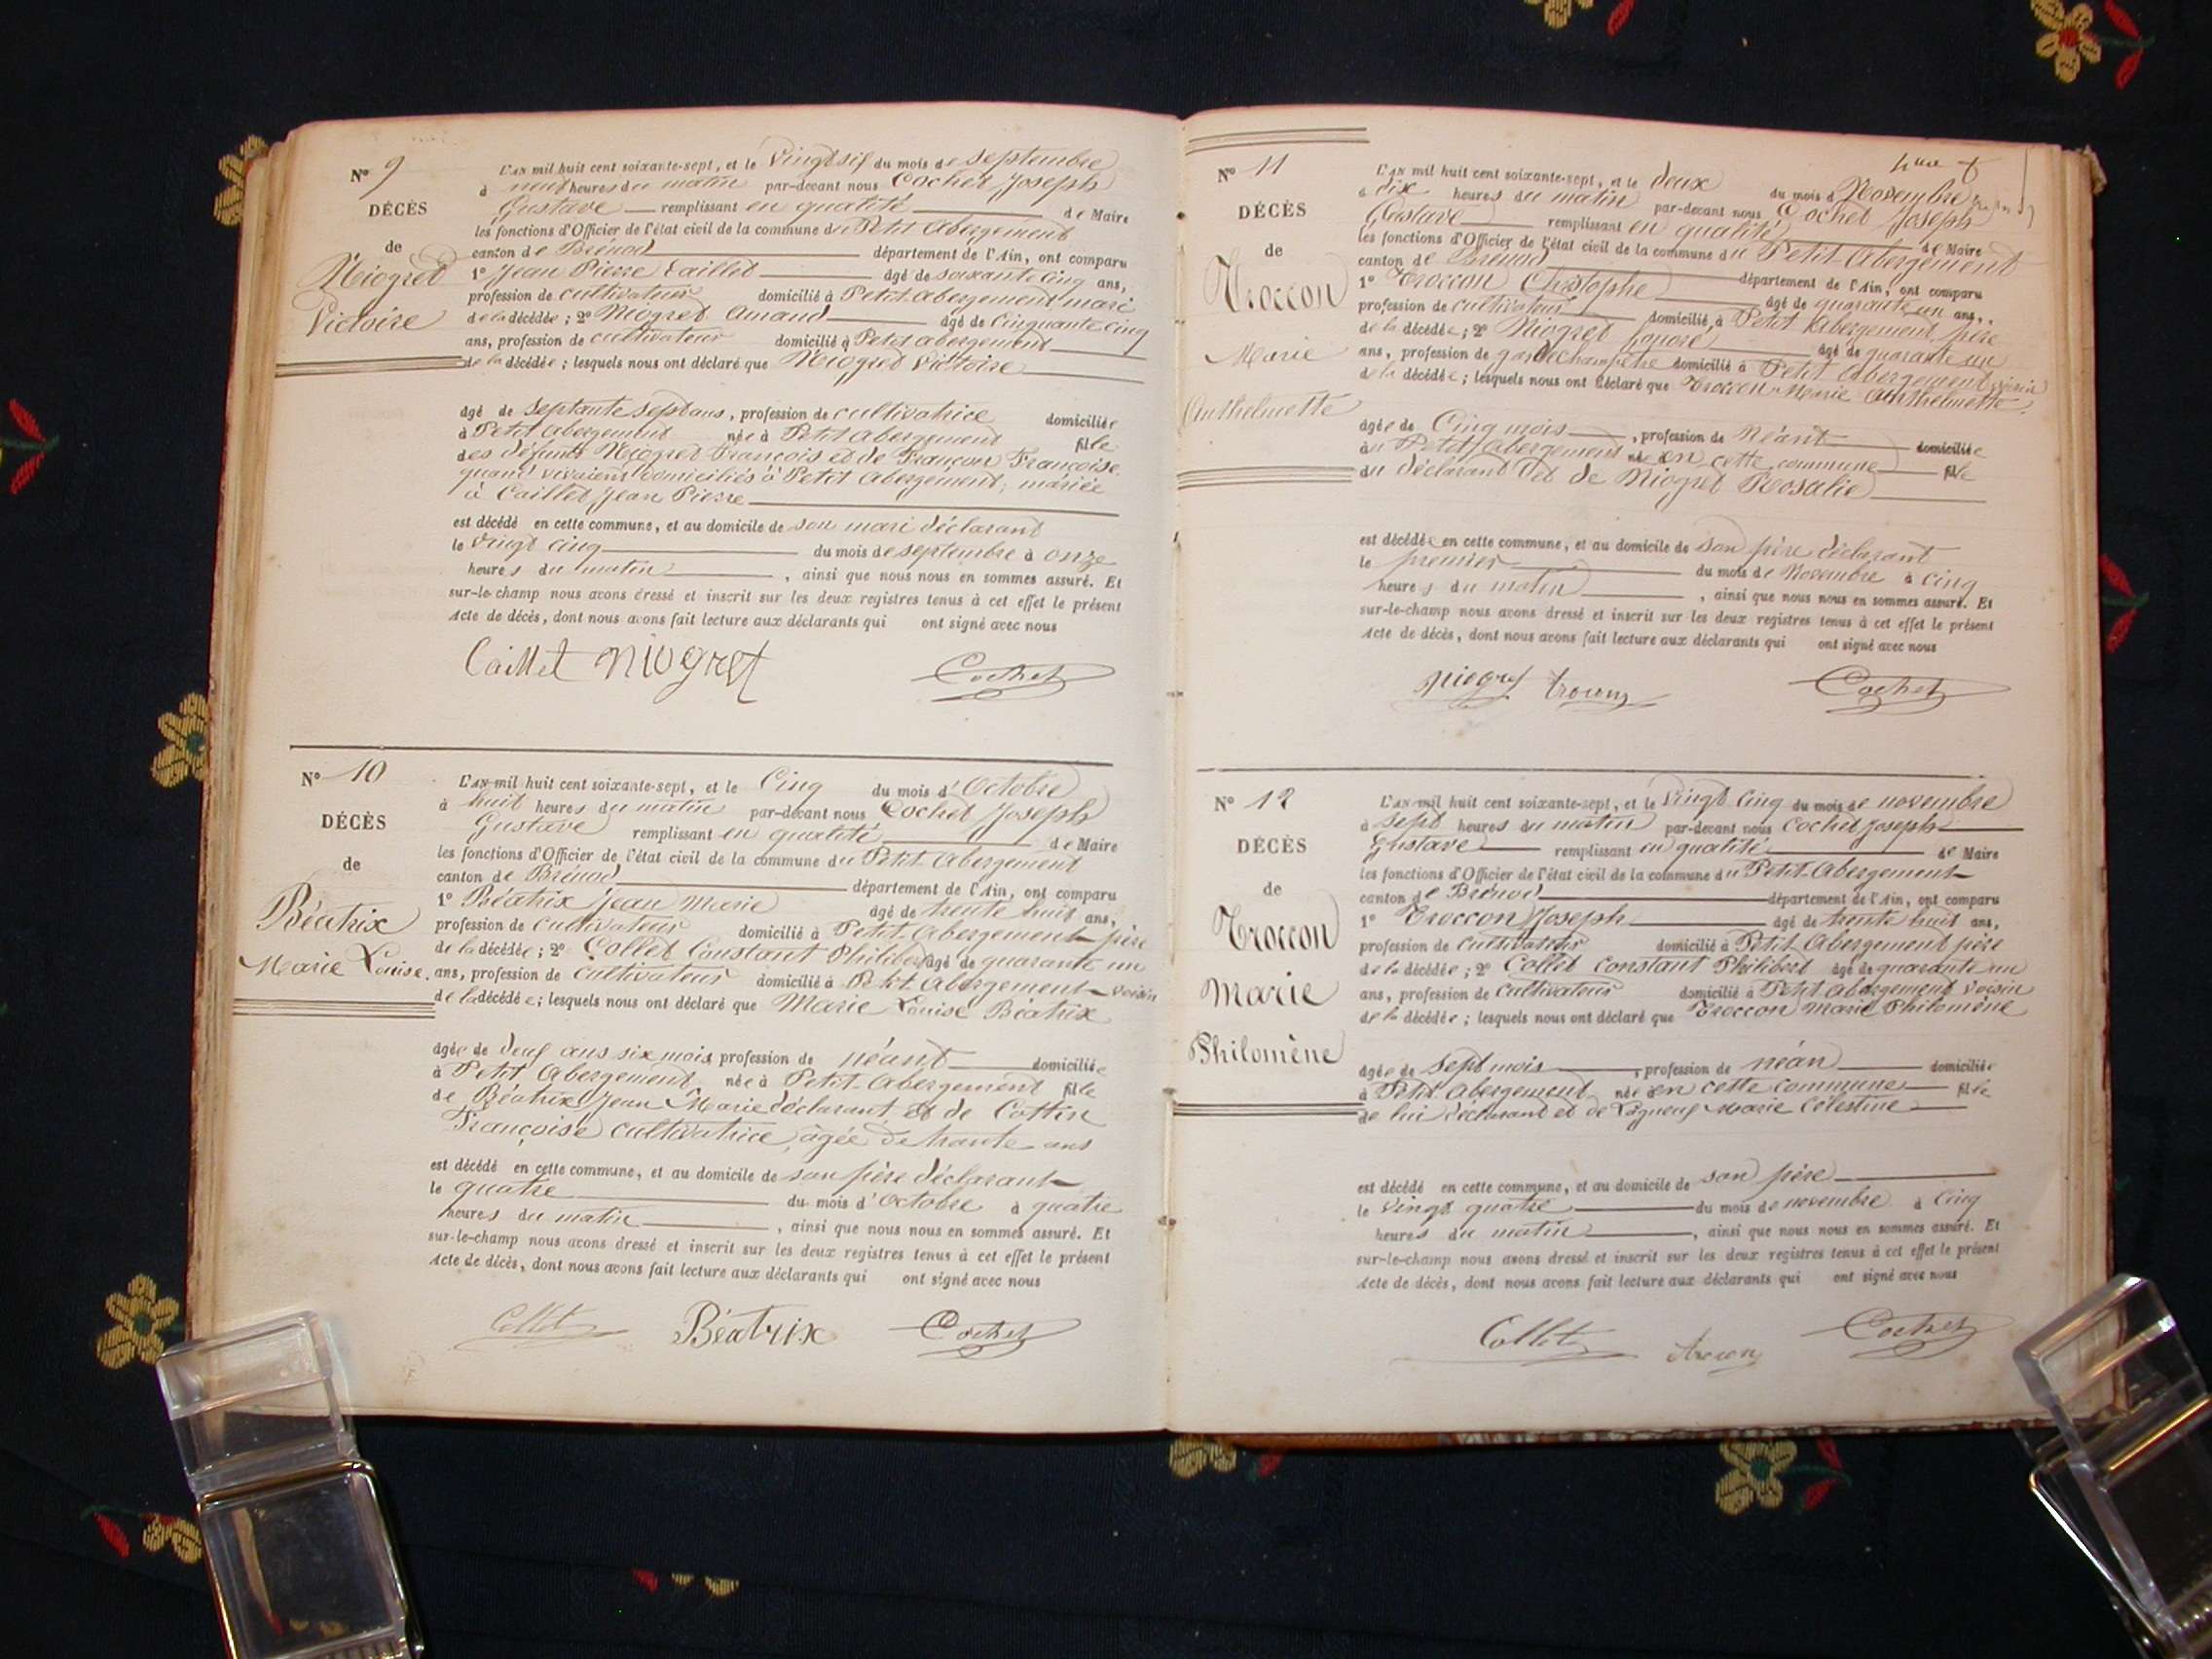 N° 9
DÉCÈS
de
Niogret
Victoire
L'AN mil huit cent soixante-sept, et le vingt six du mois de septembre
à neuf heures du matin par-devant nous Cochet Joseph
Gustave remplissant en qualité de Maire
les fonctions d'Officier de l'état civil de la commune du Petit Abergement
canton de Brénod département de l'Ain, ont comparu
1° Jean Pierre Caillet âgé de soixante cinq ans,
profession de cultivateur domicilié à Petit Abergement, mari
de la décédée; 2° Niogret Amand âgé de cinquante cinq
ans, profession de cultivateur domicilié à Petit abergement
de la décédée; lesquels nous ont déclaré que Niogret Victoire
âgé de septante sept ans, profession de cultivatrice domiciliée
à Petit abergement née à Petit abergement fille
des défunts Niogret François et de Françon Françoise
quand vivaient domiciliés à Petit Abergement, mariée
à Caillet Jean Pierre
est décédé en cette commune, et au domicile de son mari déclarant
le vingt cinq du mois de septembre à onze
heures du matin, ainsi que nous nous en sommes assuré. Et
sur-le-champ nous avons dressé et inscrit sur les deux registres tenus à cet effet le présent
Acte de décès, dont nous avons fait lecture aux déclarants qui ont signé avec nous
Caillet Niogret Cochet
N° 10
DÉCÈS
de
Béatrix
Marie Louise.
L'AN mil huit cent soixante-sept, et le Cinq du mois d'Octobre
à huit heures du matin par-devant nous Cochet Joseph
Gustave remplissant en qualité de Maire
les fonctions d'Officier de l'état civil de la commune du Petit Abergement
canton de Brénod département de l'Ain, ont comparu
1° Béatrix Jean Marie âgé de trente huit ans,
profession de cultivateur domicilié à Petit-Abergement père
de la décédée; 2° Collet Constant Philibert âgé de quarante un
ans, profession de cultivateur domicilié à Petit Abergement voisin
de la décédée; lesquels nous ont déclaré que Marie Louise Béatrix
âgée de deux ans six mois profession de néant domiciliée
à Petit Abergement née à Petit-Abergement fille
de Béatrix Jean Marie déclarant et de Cottin
Françoise cultivatrice, âgée de trente ans
est décédé en cette commune, et au domicile de son père déclarant
le quatre du mois d'Octobre à quatre
heures du matin, ainsi que nous nous en sommes assuré. Et
sur-le-champ nous avons dressé et inscrit sur les deux registres tenus à cet effet le présent
Acte de décès, dont nous avons fait lecture aux déclarants qui ont signé avec nous
Collet Béatrix Cochet
N° 11
DÉCÈS
de
Troccon
Marie
Anthelmette
L'AN mil huit cent soixante-sept, et le deux du mois d Novembre
à dix heures du matin par-devant nous Cochet Joseph
Gustave remplissant en qualité de Maire
les fonctions d'Officier de l'état civil de la commune du Petit-Abergement
canton de Brénod département de l'Ain, ont comparu
1° Troccon Christophe âgé de quarante un ans,
profession de cultivateur domicilié à Petit Abergement, père
de la décédée; 2° Niogret honoré âgé de quarante un
ans, profession de garde champêtre domicilié à Petit Abergement voisin
de la décédée; lesquels nous ont déclaré que Troccon Marie Anthelmette
âgée de Cinq mois, profession de Néant domiciliée
au Petit Abergement née en cette commune fille
du déclarant et de Niogret Rosalie
est décédée en cette commune, et au domicile de son père déclarant
le premier du mois de Novembre à cinq
heures du matin, ainsi que nous nous en sommes assuré. Et
sur-le-champ nous avons dressé et inscrit sur les deux registres tenus à cet effet le présent
Acte de décès, dont nous avons fait lecture aux déclarants qui ont signé avec nous
Cochet
N° 12
DÉCÈS
de
Troccon
Marie
Philomène
L'AN mil huit cent soixante-sept, et le vingt cinq du mois de novembre
à sept heures du matin par-devant nous Cochet Joseph
Gustave remplissant en qualité de Maire
les fonctions d'Officier de l'état civil de la commune du Petit-Abergement
canton de Brénod département de l'Ain, ont comparu
1° Troccon Joseph âgé de trente huit ans,
profession de cultivateur domicilié à Petit Abergement père
de la décédée; 2° Collet Constant Philibert âgé de quarante un
ans, profession de cultivateur domicilié à Petit Abergement voisin
de la décédée; lesquels nous ont déclaré que Troccon Marie Philomène
âgée de sept mois, profession de néan domiciliée
à Petit Abergement née en cette commune fille
de lui déclarant et de Marie Célestine
est décédé en cette commune, et au domicile de son père
le vingt quatre du mois de novembre à cinq
heures du matin, ainsi que nous nous en sommes assuré. Et
sur-le-champ nous avons dressé et inscrit sur les deux registres tenus à cet effet le présent
Acte de décès, dont nous avons fait lecture aux déclarants qui ont signé avec nous
Collet Cochet